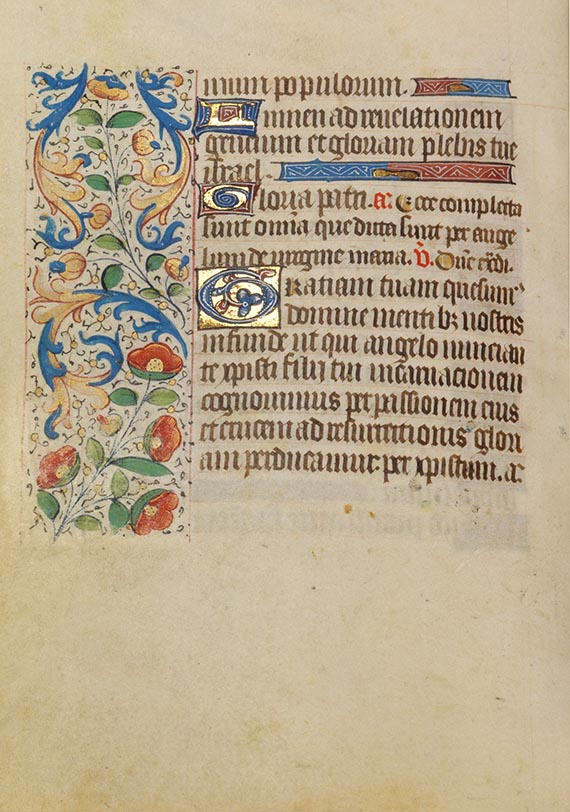 mium populorum.
Lumen ad reuelationem
gencium et gloriam plebis tue
israel.
Gloria patri. a: Ecce completa
sunt omia que dicta sunt per ange
lum de virgine maria. v. Dne exdi.
Gratiam tuam quesum
domine mentibz nostris
infunde ut qui angelo nuncian
te xpisti filij tui incarnacionem
cognouimus per passionem eius
et crucem ad resurrectionis glori
am perducamur. per xpistum. a: